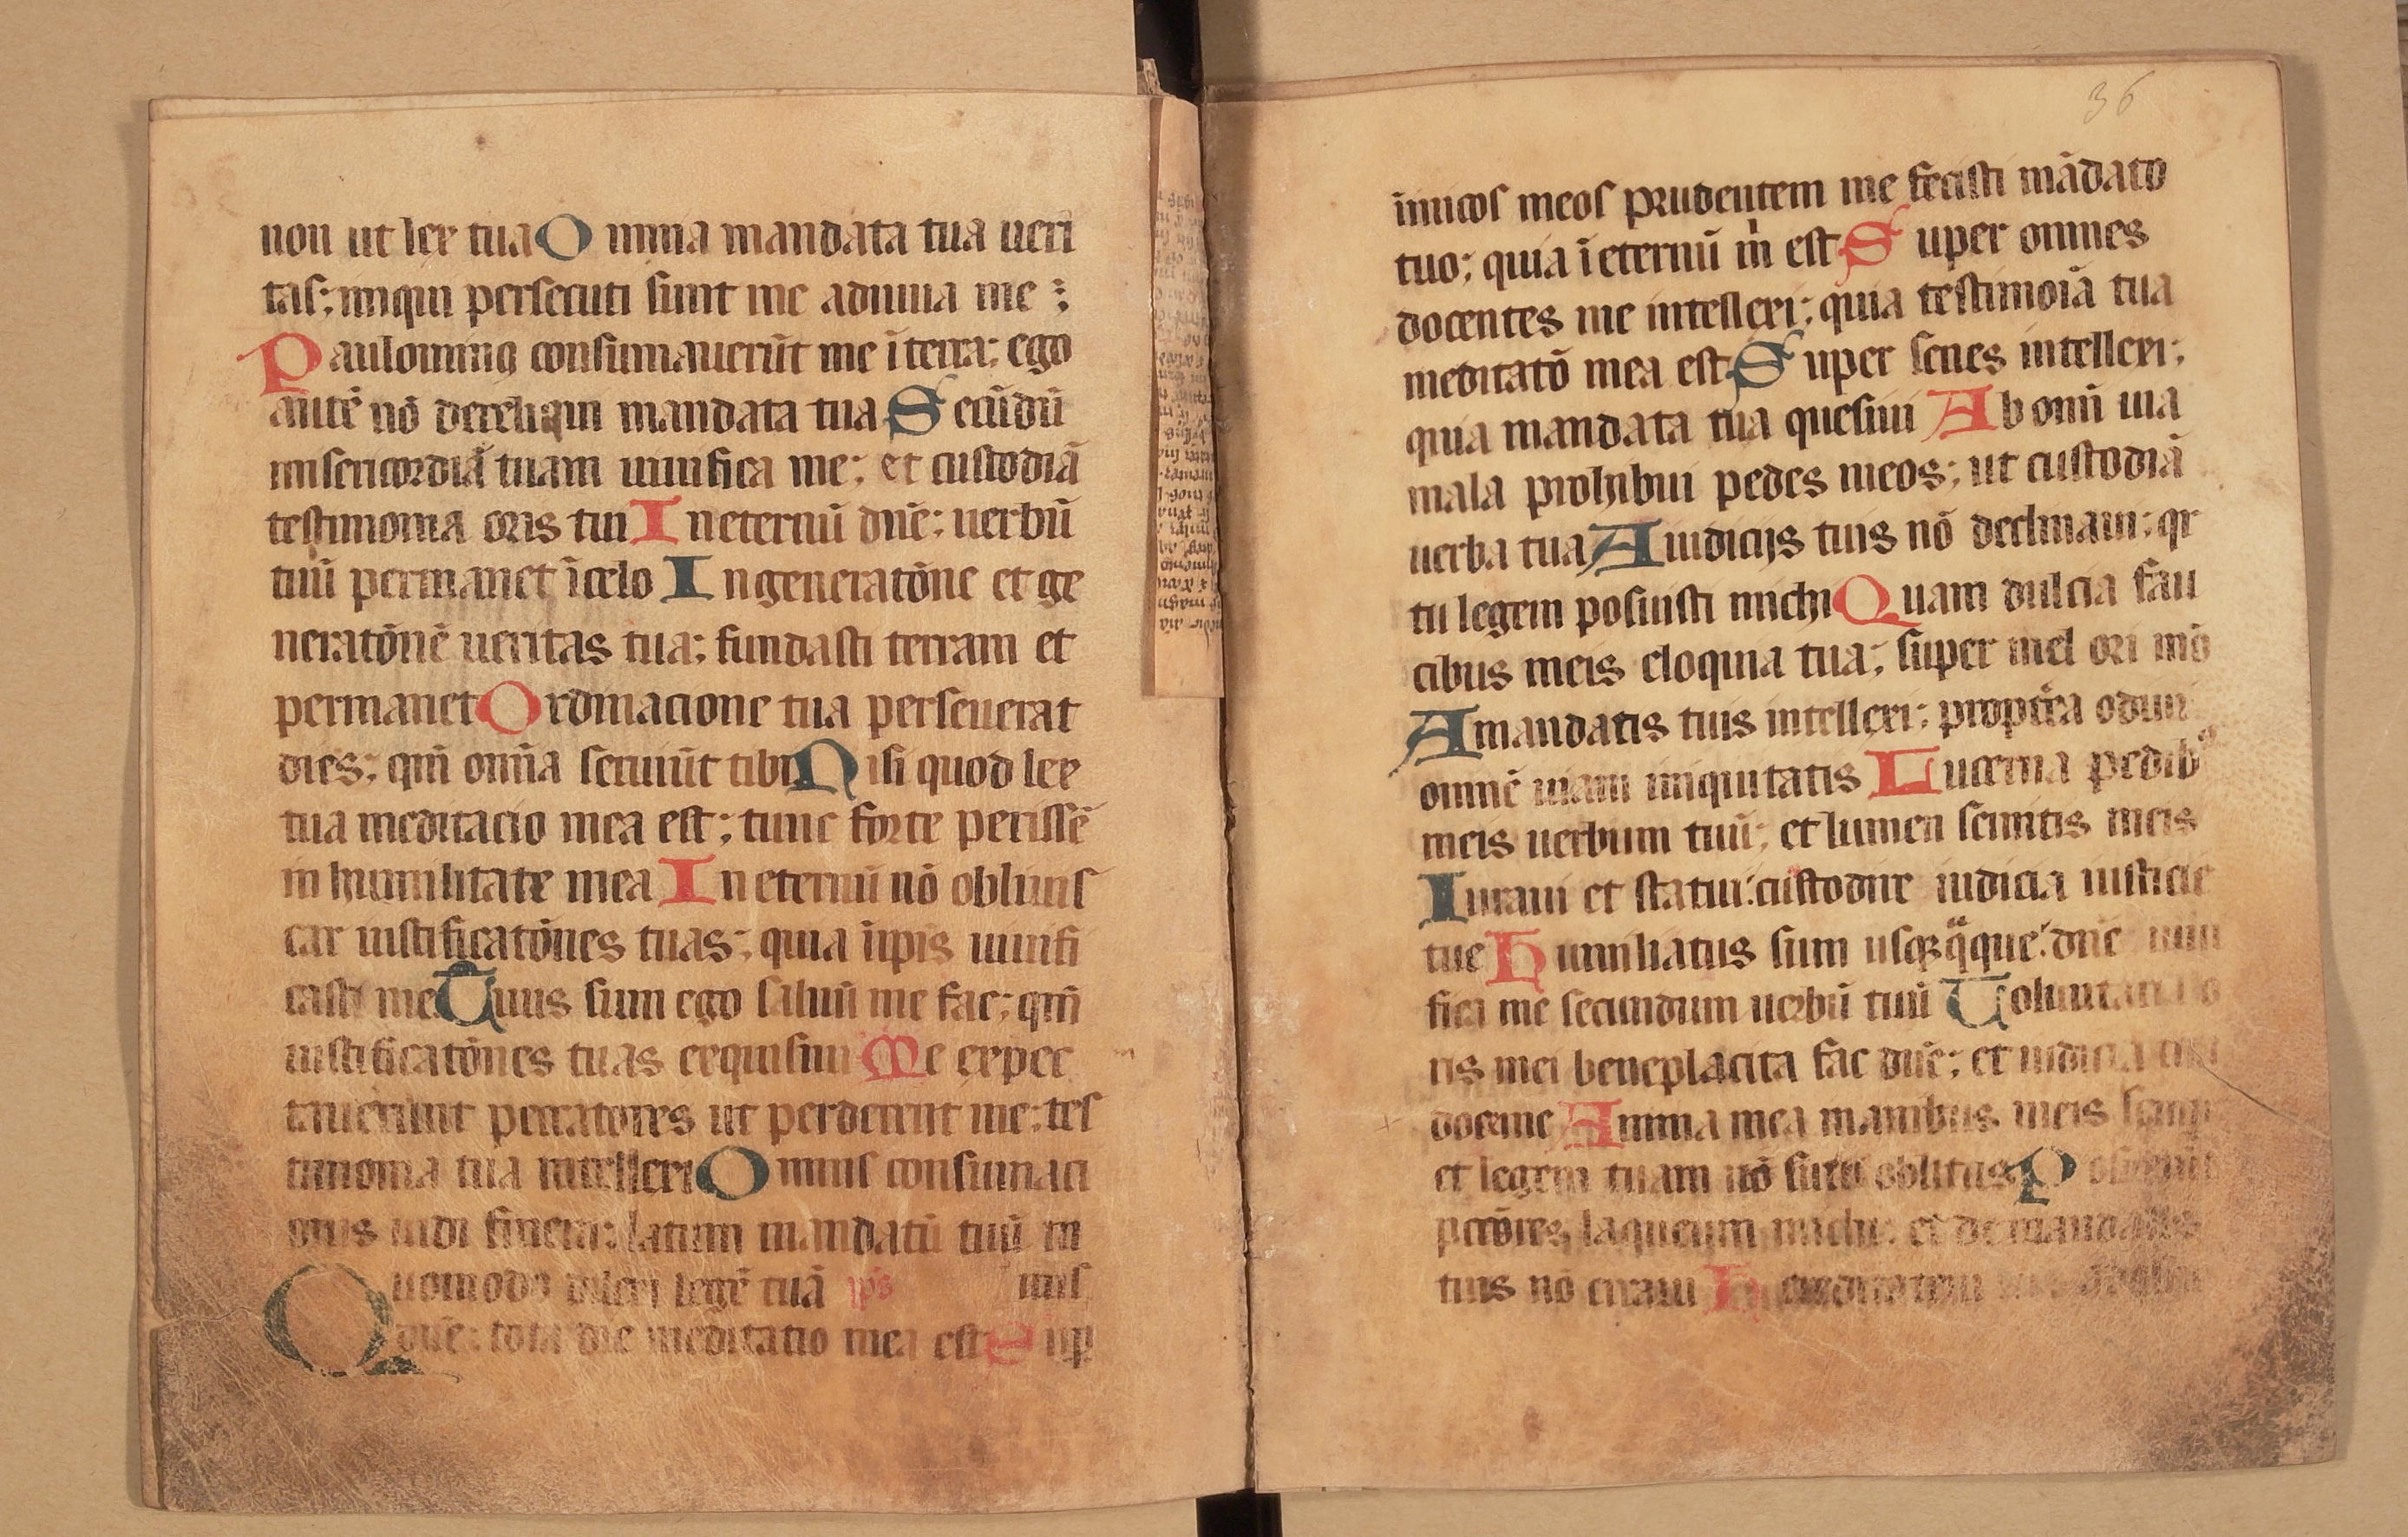 non ut lex tua Omnia mandata tua ueri
tas; iniqui persecuti sunt me adiuua me ⁝
Paulominꝰ consumauerūt me ī terra; ego
autē nō dereliqui mandata tua Secūdū
misericordiā tuam uiuifica me; et custodiā
testimonia oris tui In eternū dn̄e; uerbū
tuū permanet ī celo In generatōne et ge
neratōnē ueritas tua; fundasti terram et
permanet Ordinacione tua perseuerat
dies; qm̄ omīa seruiūt tibi Nisi quod lex
tua meditacio mea est; tunc forte perissē
in humilitate mea In eternū nō obliuis
car iustificatōnes tuas; quia īipis uiuifi
casti me Tuus sum ego saluū me fac; qm̄
iustificatōnes tuas exquisiui Me expec
tauerunt peccatores ut perderent me; tes
timonia tua intellexi Omnis consumaci
onis uidi finem; latum mandatū tuū ni
Quomodo dilexi legē tuā ip̄s mis
dn̄e; tota die meditatio mea est Sup̄
36
inicos meos prudentem me fecisti mādato
tuo; quia ī eternū m̄ est Super omnes
docentes me intellexi; quia testimoīa tua
meditatō mea est Super senes intellexi;
quia mandata tua quesiui Ab omī uia
mala prohibui pedes meos; ut custodiā
uerba tua A iudicijs tuis nō declinaui; qr
tu legem posuisti michi Quam dulcia fau
cibus meis eloquia tua; super mel ori mō
A mandatis tuis intellexi; propt̄ea odiui
omnē uiam iniquitatis Lucerna pedibꝰ
meis uerbum tuū; et lumen semitis meis
Iuraui et statui; custodire iudicia iusticie
tue Humiliatus sum usqꝫ q̈que; dn̄e uiui
fica me secundum uerbū tuū Voluntaria o
ris mei beneplacita fac dn̄e; et iudicia tua
doceme Anima mea manibus meis semp
et legem tuam nō sum oblitus Posuerūt
pctōres laqueum michi; et de mandatis
tuis nō erraui Hereditatem